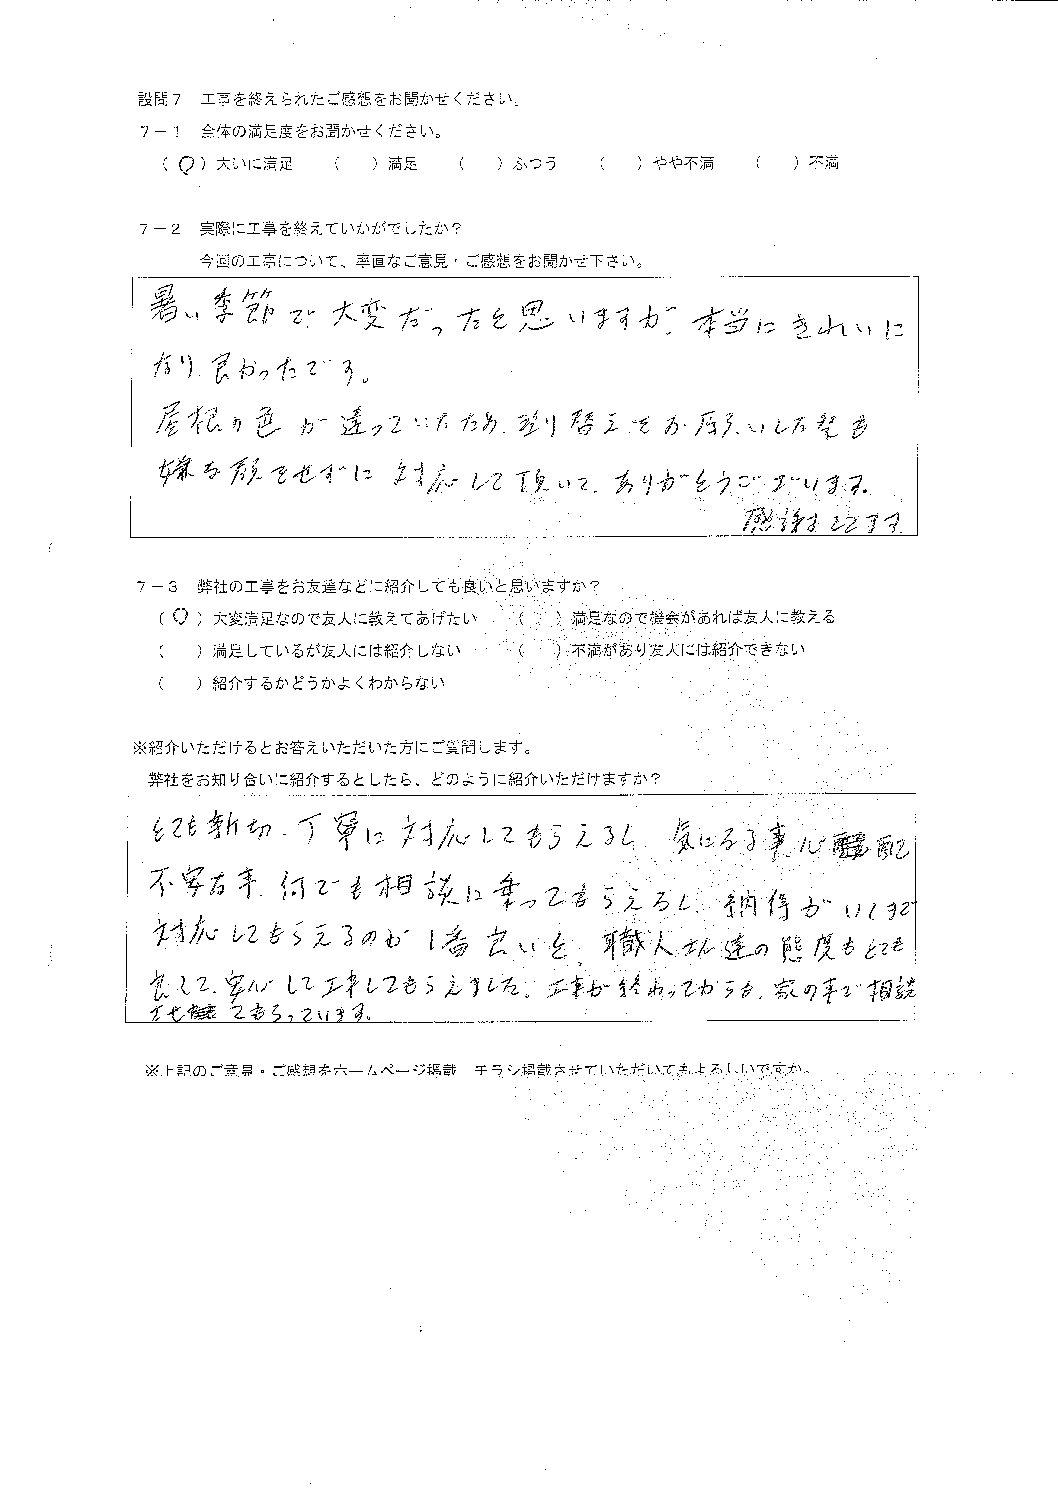 設問７　工事を終えられたご感想をお聞かせください。
７－１　全体の満足度をお聞かせください。
（ ○ ）大いに満足　（　）満足　（　）ふつう　（　）やや不満　（　）不満
７－２　実際に工事を終えていかがでしたか？
今回の工事について、率直なご意見・ご感想をお聞かせ下さい。
暑い季節で、大変だったと思いますが、本当にきれいに
なり、良かったです。
屋根の色が違っていたため、塗り替えをお願いした時も
嫌な顔をせずに対応して頂いて、ありがとうございます。
感謝してます。
７－３　弊社の工事をお友達などに紹介しても良いと思いますか？
（ ○ ）大変満足なので友人に教えてあげたい　（　）満足なので機会があれば友人に教える
（　）満足しているが友人には紹介しない　（　）不満があり友人には紹介できない
（　）紹介するかどうかよくわからない
※紹介いただけるとお答えいただいた方にご質問します。
弊社をお知り合いに紹介するとしたら、どのように紹介いただけますか？
とても親切、丁寧に対応してもらえるし、気になる事、心配
不安な事、何でも相談に乗ってもらえるし、納得がいくまで
対応してもらえるのが1番良いと、職人さん達の態度もとても
良くて、安心して工事してもらえました。工事が終わってからも、家の事で相談
させてもらっています。
※上記のご意見・ご感想をホームページ掲載、チラシ掲載させていただいてもよろしいですか。